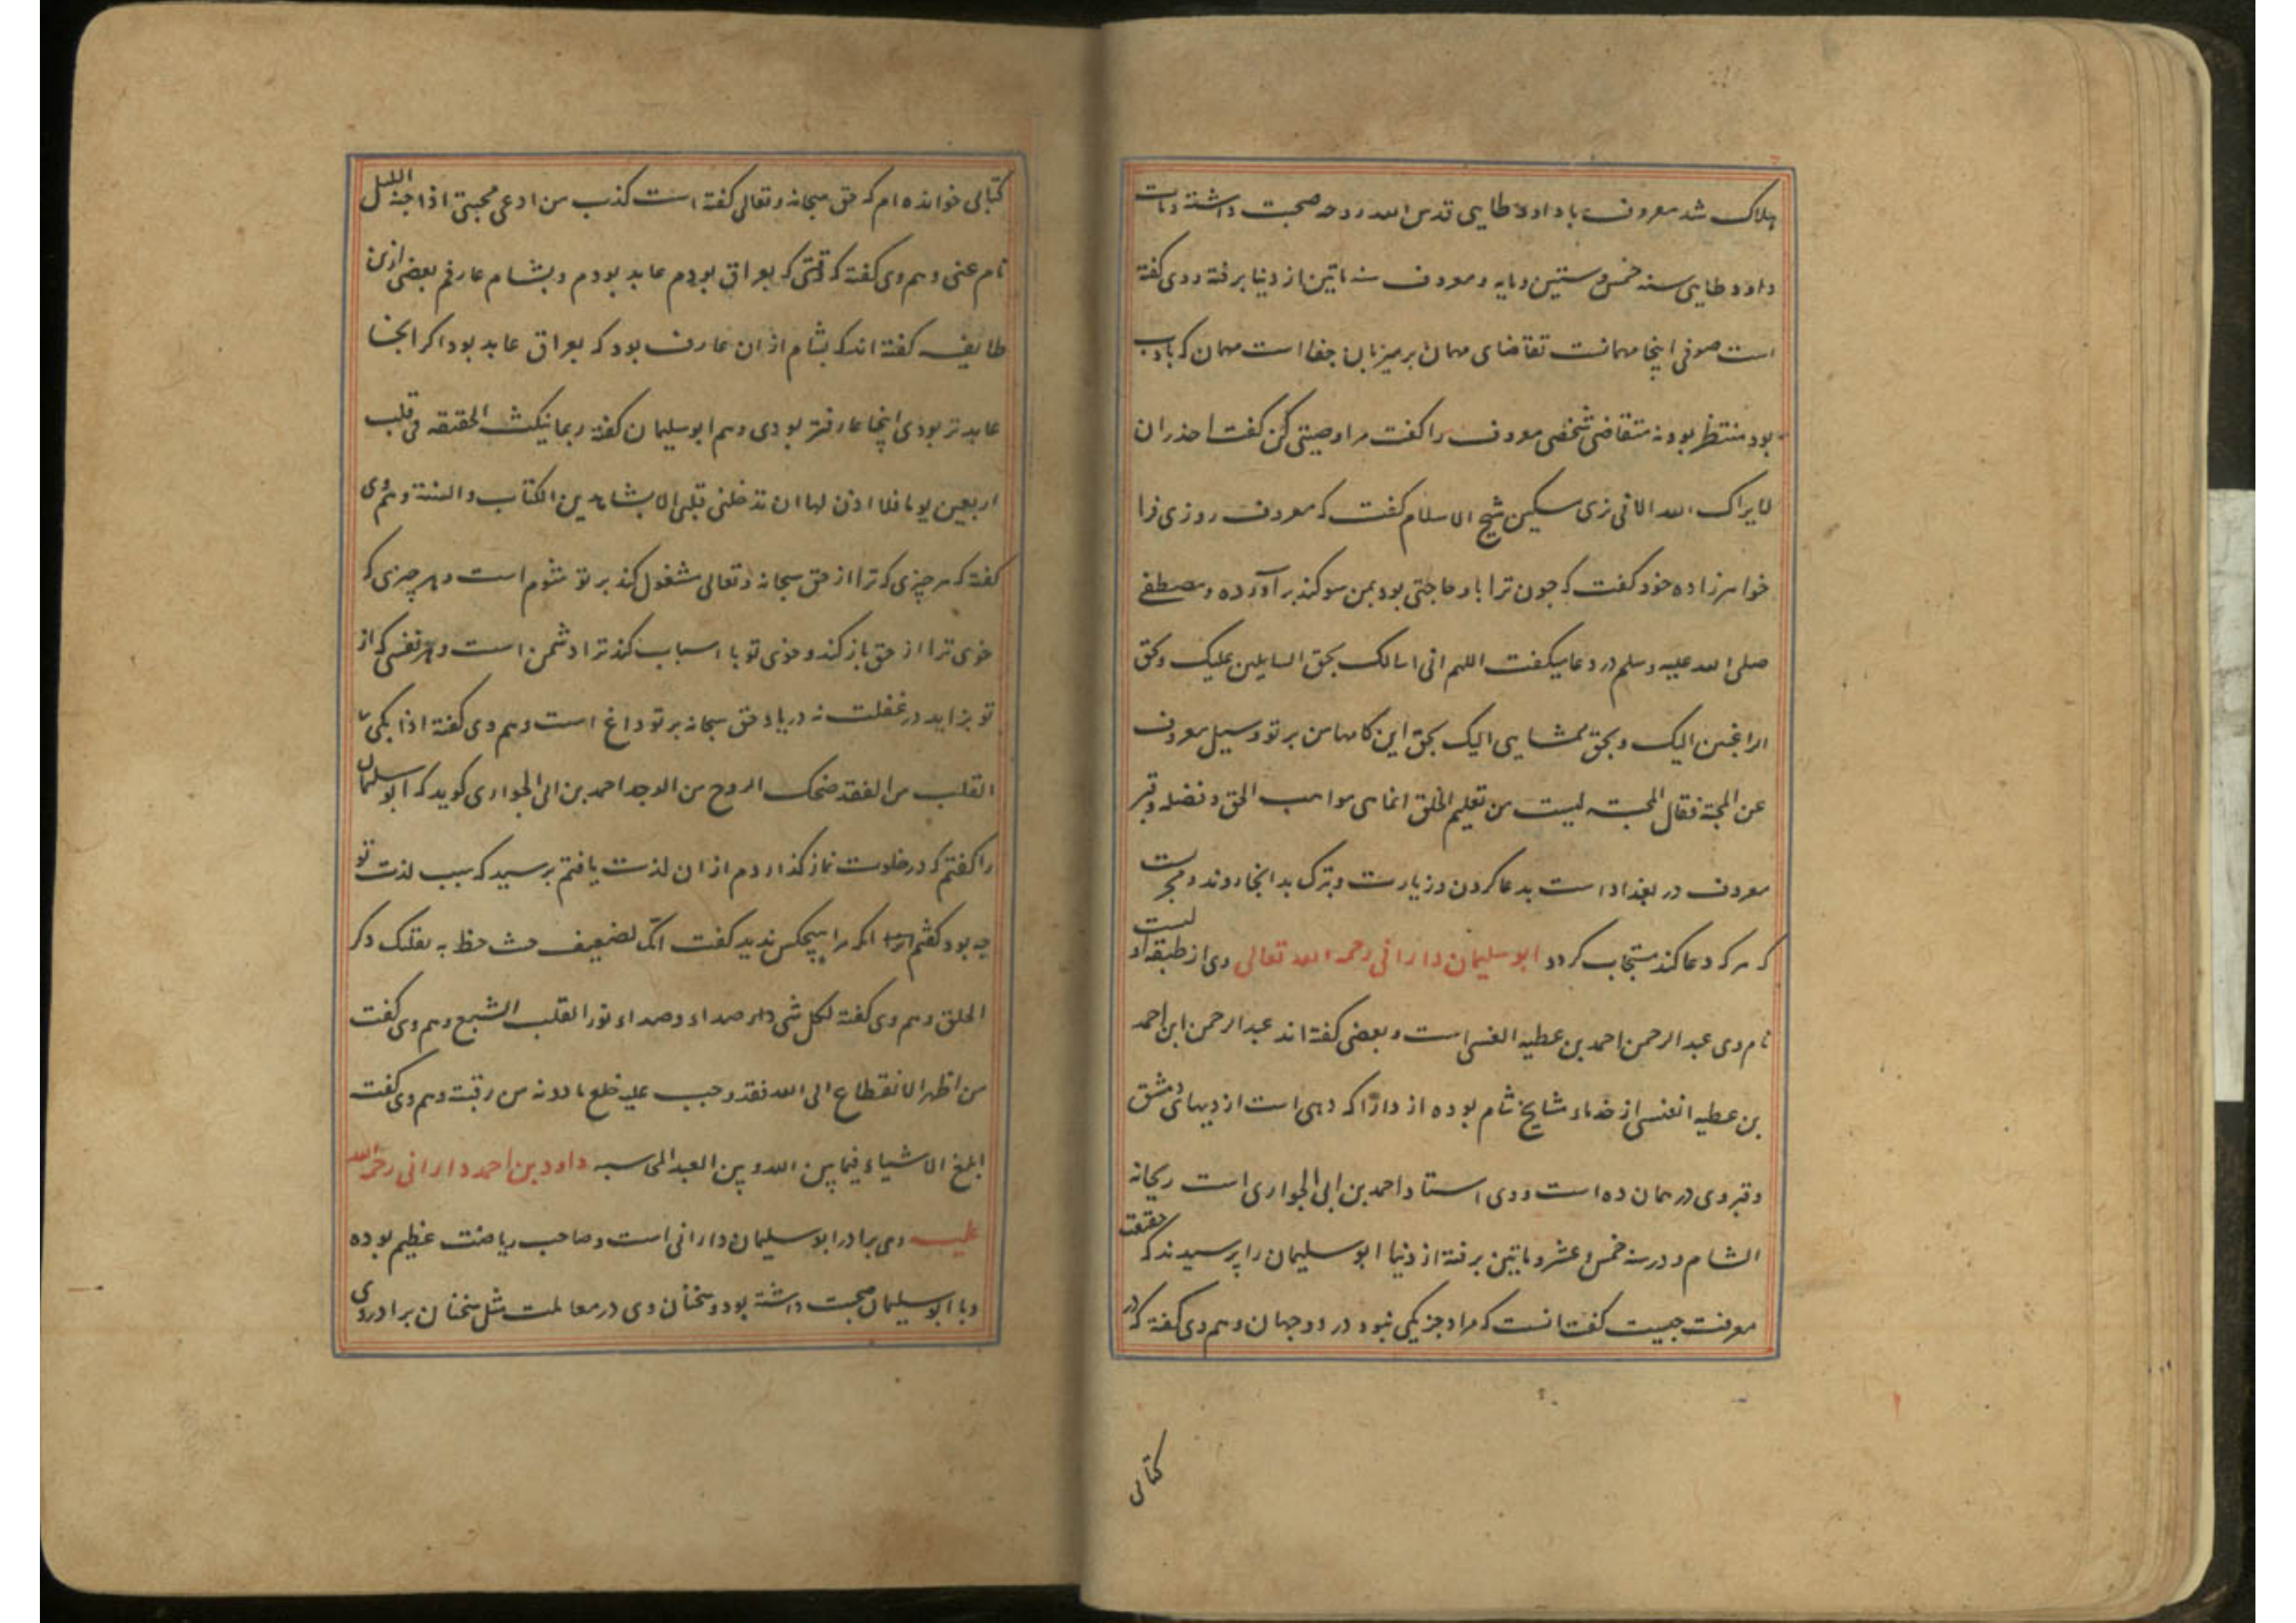 هلاک شد معروف با داود طایی قدس الله روحه صحبت داشته ومات
داود طایی سنه خمس وستین ومایه ومعروف سنه مأتین از دنیا برفته ووی گفته
است صوفی اینجا مهمانست تقاضای مهمان بر میزبان جفا است مهمان که بادب
بود منتظر بود نه متقاضی شخصی معروف را گفت مرا وصیتی کن گفت احذر ان
لا یراک الله الا فی زی مسکین شیخ الاسلام گفت که معروف روزی فرا
خواهرزاده خود گفت که چون ترا باو حاجتی بود بمن سوکند بر آورده ومصطفی
صلی الله علیه وسلم در دعا میکفت اللهم انی اسالک بحق السایلین علیک وبحق
الراغبین الیک وبحق ممشایی الیک بحق این کامها من بر تو وسیل معروف
عن المحبة فقال المحبة لیست من تعلیم الخلق انماهی مواهب الحق وفضله وقبر
معروف در بغداد است بدعا کردن وزیارت وتبرک بدانجا روند ومجربست
که هر که دعا کند مستجاب کردد ابو سلیمان دارانی رحمه الله تعالی وی از طبقه اولیست
نام وی عبد الرحمن احمد بن عطیه العنسی است وبعضی کفته اند عبد الرحمن ابن احمد
بن عطیه العنسی از قدماء مشایخ شام بوده از دارا که دهی است از دیهای دمشق
وقبر وی در همان ده است ووی استاد احمد بن ابی الحواری است ریحانه
الشام ودر سنه خمس وعشر وماتین برفته از دنیا ابو سلیمان را پرسیدند که حقیقت
معرفت چیست کفت انست که مراد جز یکی نبود در دو جهان وهم وی گفته که در
کتابی
کتابی خوانده ام که حق سبحانه وتعالی گفته است کذب من ادعی محبتی اذا جنه اللیل
نام عنی وهم وی گفته که وقتی که بعراق بودم عابد بودم وبشام عارفم بعضی ازین
طایفه گفته اند که بشام ازان عارف بود که بعراق عابد بود اکر انجا
عابدتر بودی اینجا عارفتر بودی وهم ابو سلیمان گفته ربما ینکث الحقیقه فی قلب
اربعین یوما فلا اذن لها ان تدخلنی قلبی الا بشاهدین الکتاب والسنة وهم وی
گفته که هر چیزی که ترا از حق سبحانه وتعالی مشغول کند بر تو شوم است وهر چیزی که
خوی ترا از حق باز کند وخوی تو با اسباب کند ترا دشمن است وهر نفسی که از
تو بر اید در غفلت نه در یاد حق سبحانه بر تو داغ است وهم وی کفته اذا بکی
القلب من الفقد ضحک الروح من الوجد احمد بن ابی الحواری کوید که ابو سلیمان
را کفتم که در خلوت نماز کذاردم از ان لذت یافتم پرسید که سبب لذت تو
چه بود کفتم انکه مرا هیچکس ندید کفت انک لضعیف حیث حظ به بقلبک ذکر
الخلق وهم وی کفته لکل شی داء صداء وصداء نور القلب الشبع وهم وی کفت
من اظهر الانقطاع الی الله فقد وجب علیه خلع مادونه من رقبته وهم وی کفت
ابلغ الاشیاء فیما بین الله وبین العبد المحاسبه داود بن احمد دارانی رحمة الله
علیه وی برادر ابو سلیمان دارانی است وصاحب ریاضت عظیم بوده
وبا ابو سلیمان صحبت داشته بود وسخنان وی در معاملت مثل سخنان برادر وی